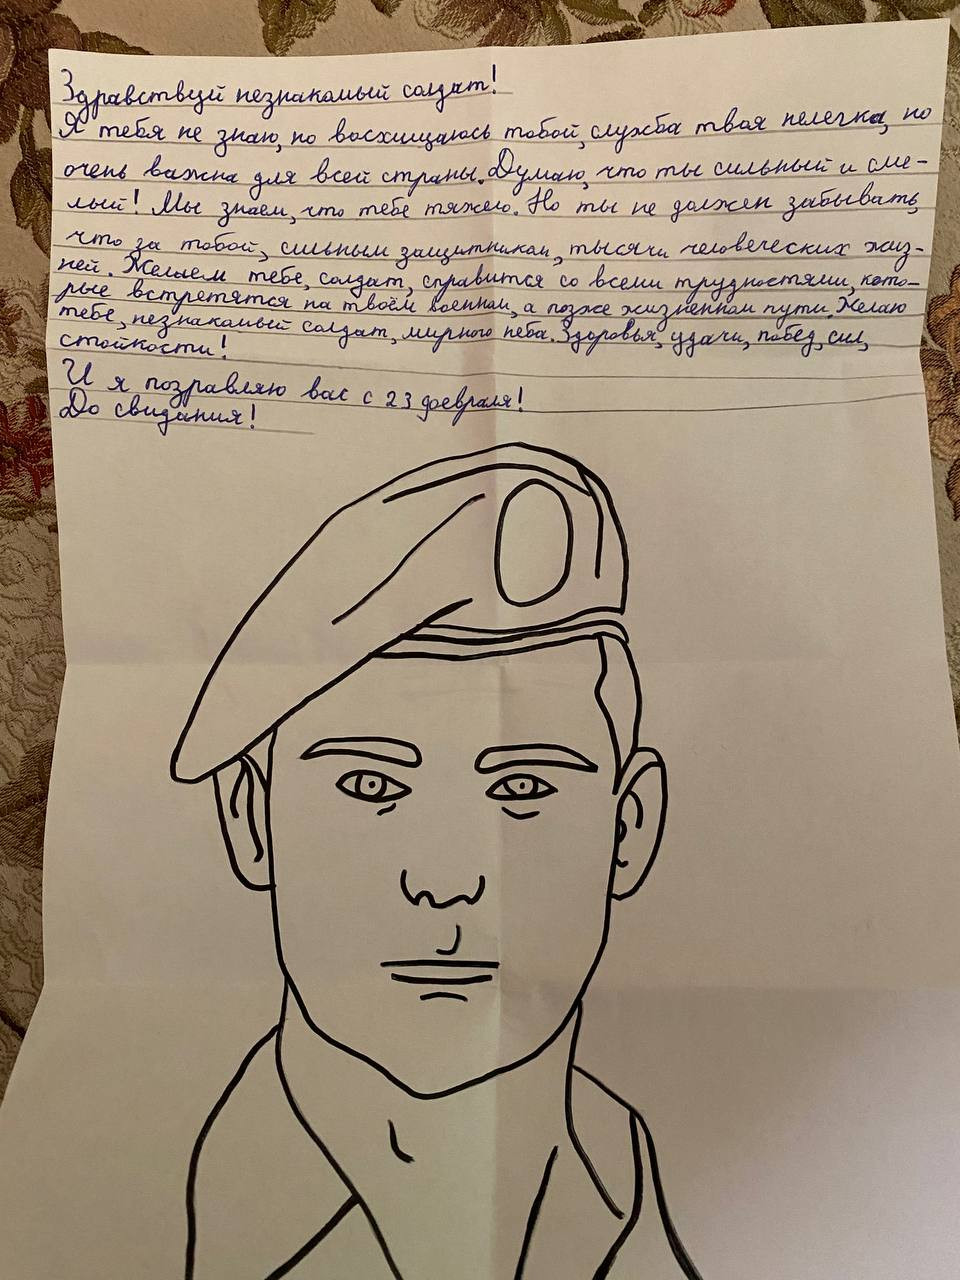 Здравствуй незнакомый солдат!
Я тебя не знаю, но восхищаюсь тобой, служба твоя нелегка, но
очень важна для всей страны. Думаю, что ты сильный и сме-
лый! Мы знаем, что тебе тяжело. Но ты не должен забывать,
что за тобой, сильным защитником, тысячи человеческих жиз-
ней. Желаем тебе, солдат, справится со всеми трудностями, кото-
рые встретятся на твоём военном, а позже жизненном пути. Желаю
тебе, незнакомый солдат, мирного неба. Здоровья, удачи, побед, сил,
стойкости!
И я позравляю вас с 23 февраля!
До свидания!